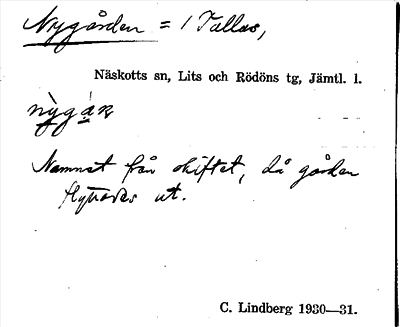 Nygården = 1 Tallas,
Näskotts sn, Lits och Rödöns tg, Jämtl. l.
Namnet från skiftet, då gården
flyttades ut.
C. Lindberg 1930—31.